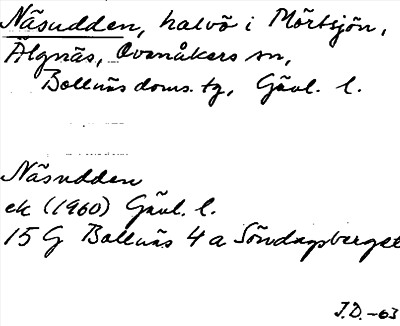 Näsudden, halvö i Mörtsjön,
Älgnäs, Ovanåkers sn,
Bollnäs doms. tg, Gävl. l.
Näsudden
ek (1960) Gävl. l.
15 G Bollnäs 4 a Söndagsberget
J.D.-63